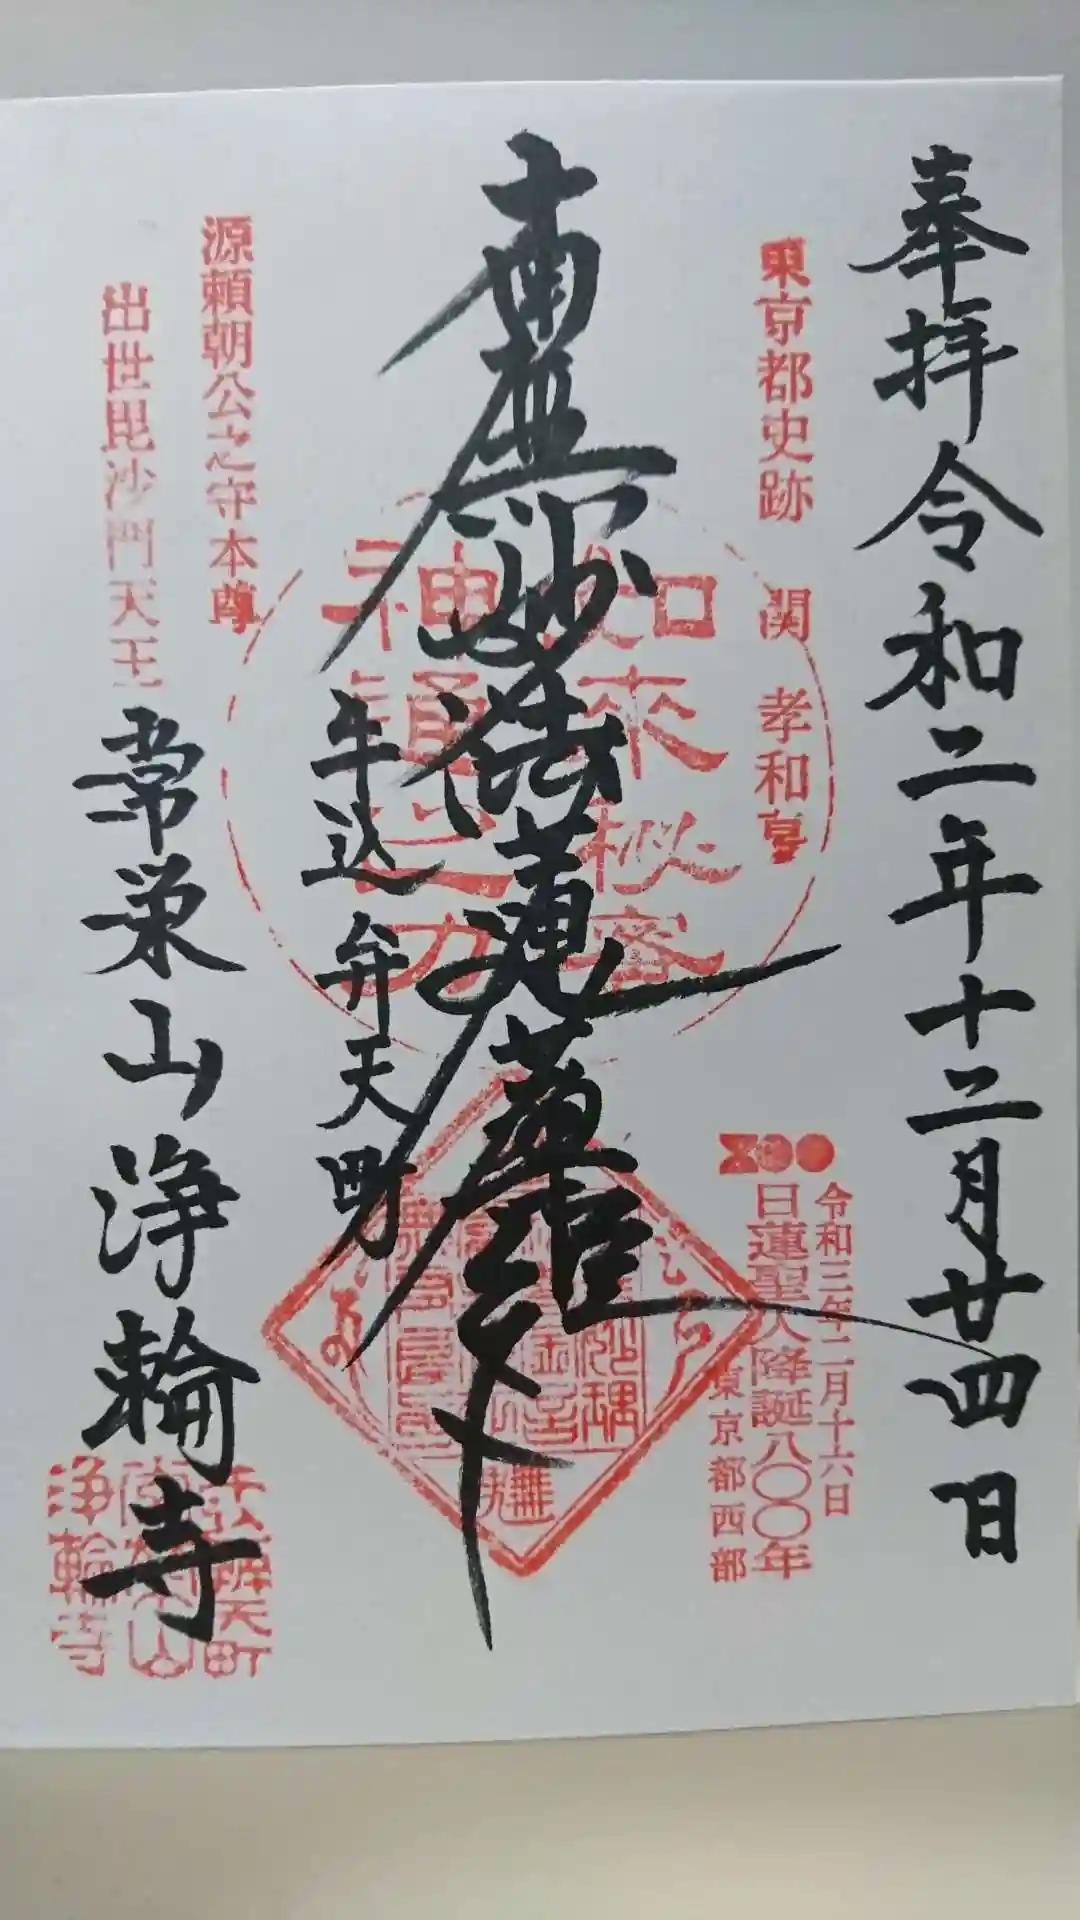 奉拝令和二年十二月廿四日
東京都史跡 関 孝和墓
令和三年二月十六日
日蓮聖人降誕八〇〇年
東京都西部
南無妙法蓮華経
如来秘密
神通之力
牛込弁天町
源頼朝公之守本尊
出世毘沙門天王
常栄山浄輪寺
牛込辨天町
常栄山
浄輪寺